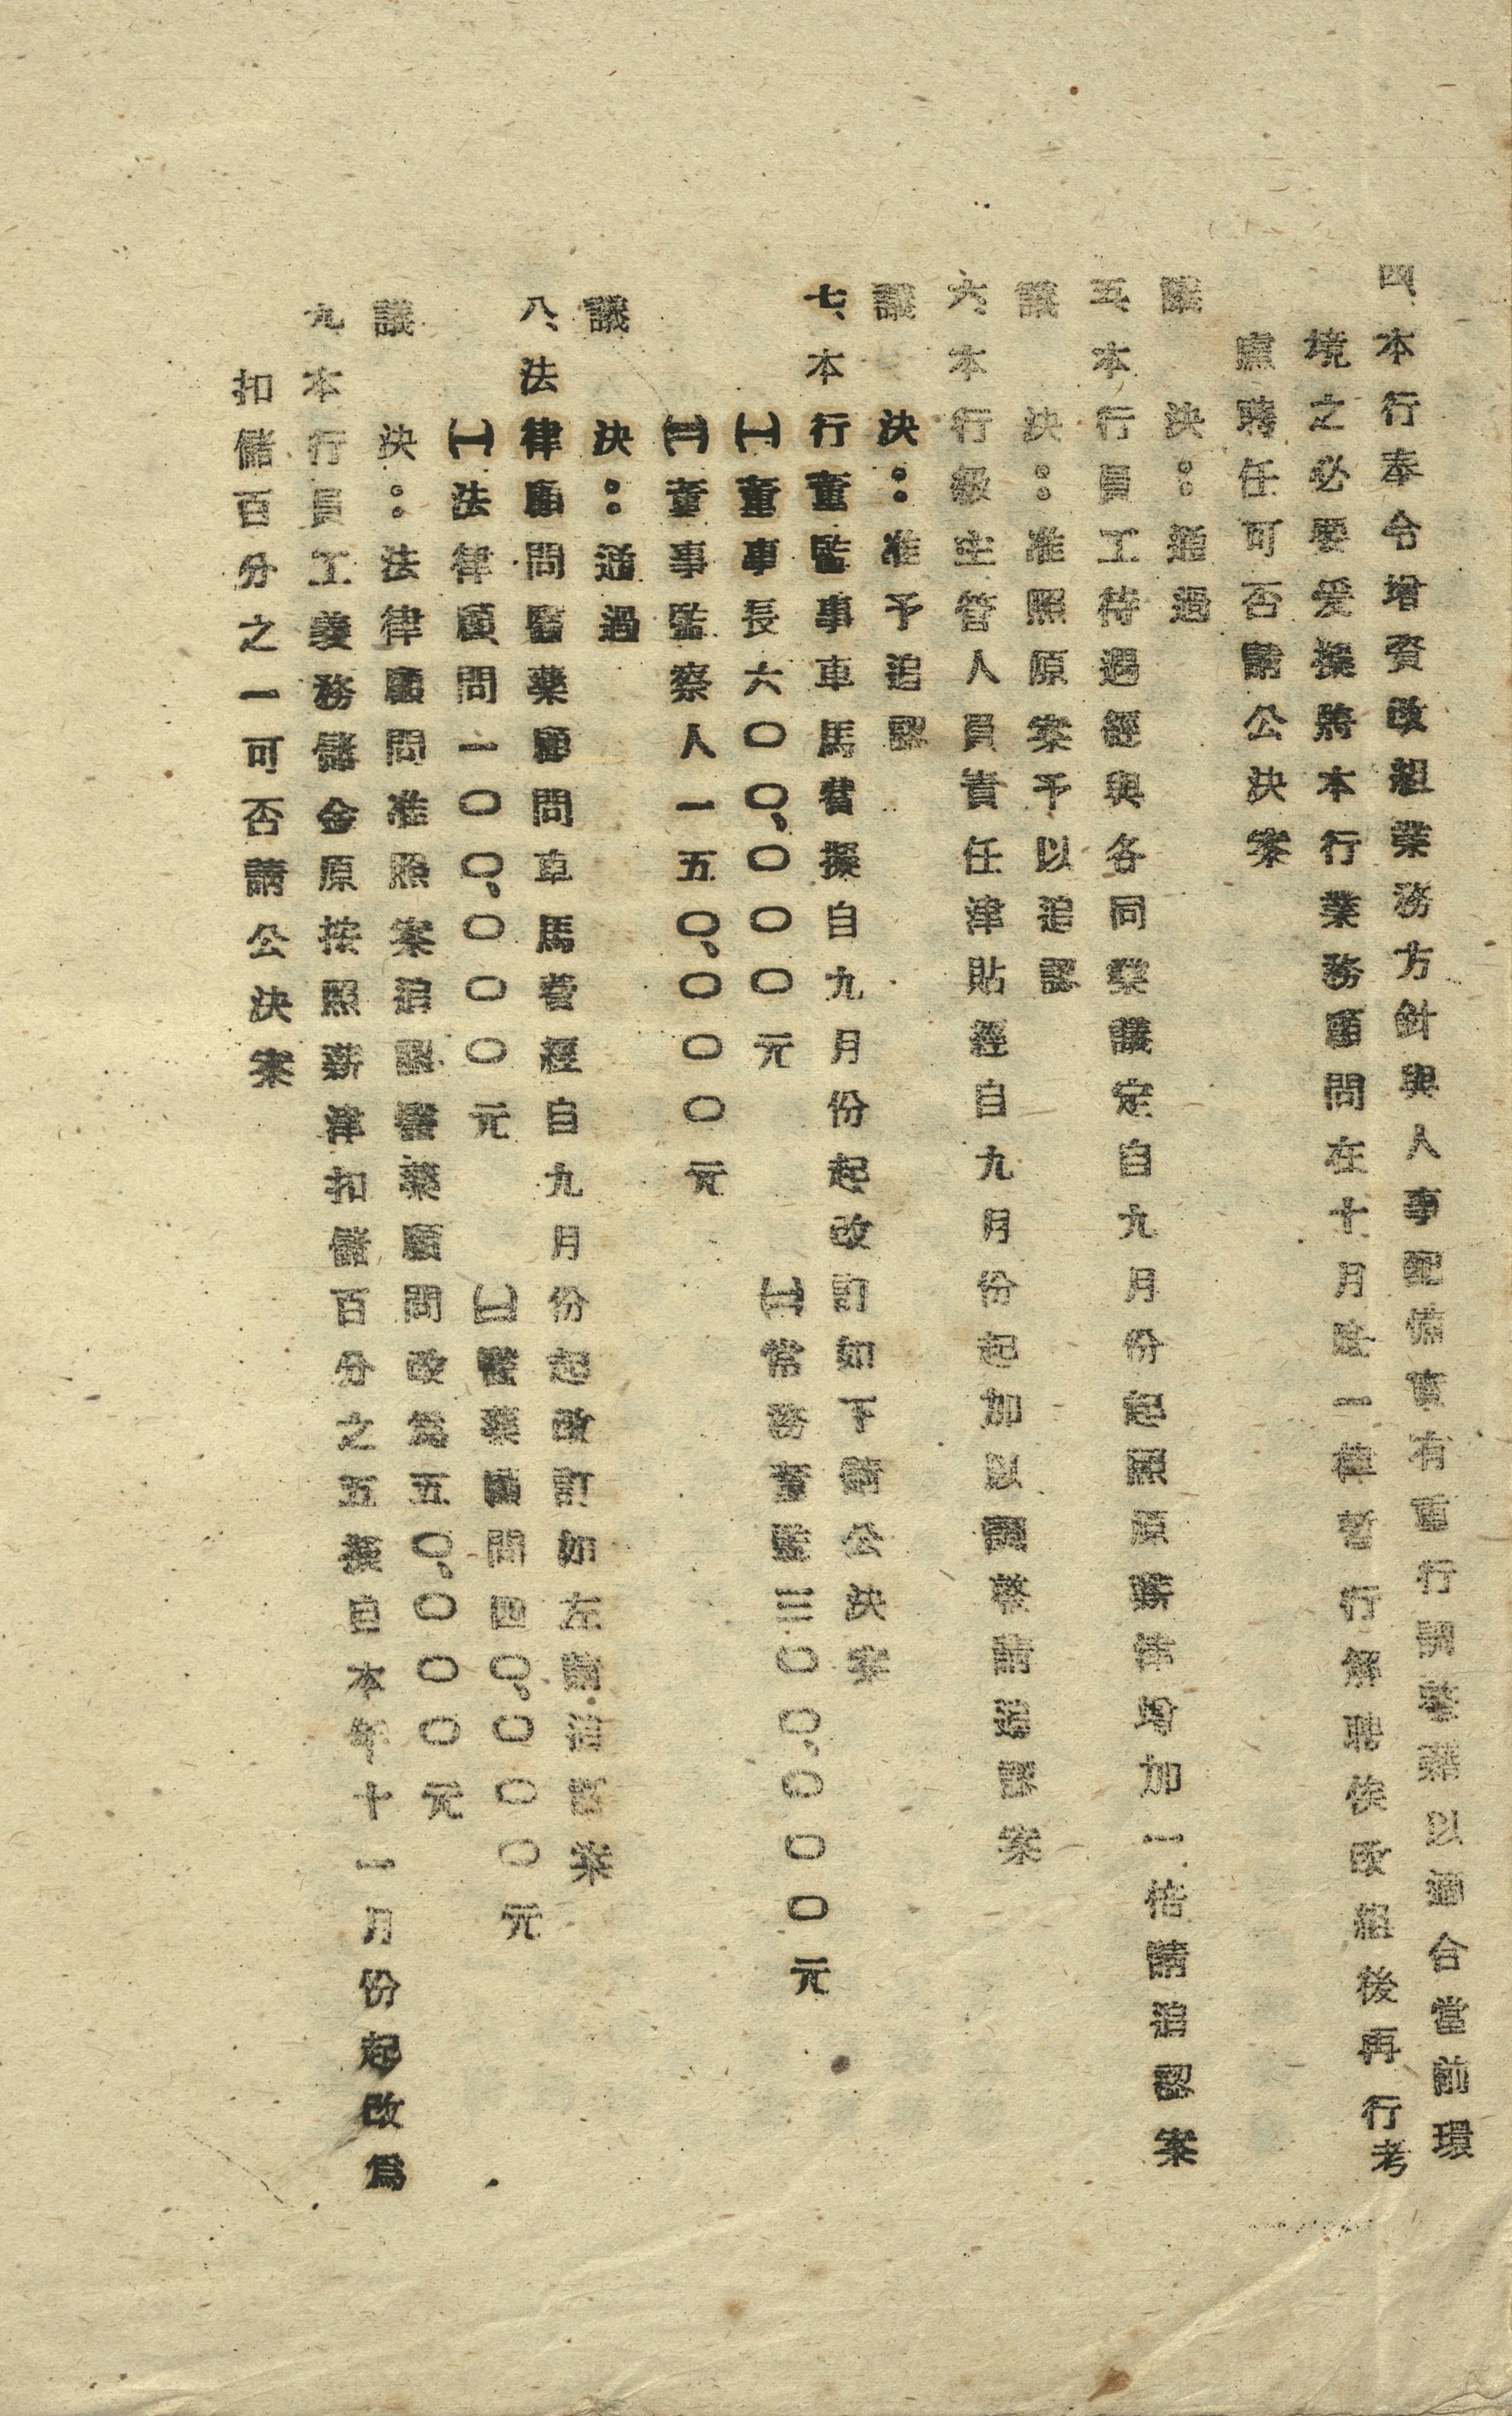 四、本行奉令增資改組業務方針與人事配備實有重行調整藉以適合當前環
境之必要爰擬將本行業務顧問在十月底一律暫行解聘俟改組後再行考
慮聘任可否請公決案
議　決：通過
五、本行員工待遇經與各同業議定自九月份起照原薪津均加一倍請追認案
議　決：准照原案予以追認
六、本行級主管人員責任津貼經自九月份起加以調整請追認案
議　決：准予追認
七、本行董監事車馬費擬自九月份起改訂如下請公決案
㈠董事長六〇〇、〇〇〇元　㈡常務董監三〇〇、〇〇〇元
㈢董事監察人一五〇、〇〇〇元
議　決：通過
八、法律顧問醫藥顧問車馬費經自九月份起改訂如左請追認案
㈠法律顧問一〇〇、〇〇〇元　㈡醫藥顧問四〇、〇〇〇元
議　決：法律顧問准照案追認醫藥顧問改為五〇、〇〇〇元
九、本行員工義務儲金原按照薪津扣儲百分之五擬自本年十一月份起改爲
扣儲百分之一可否請公決案